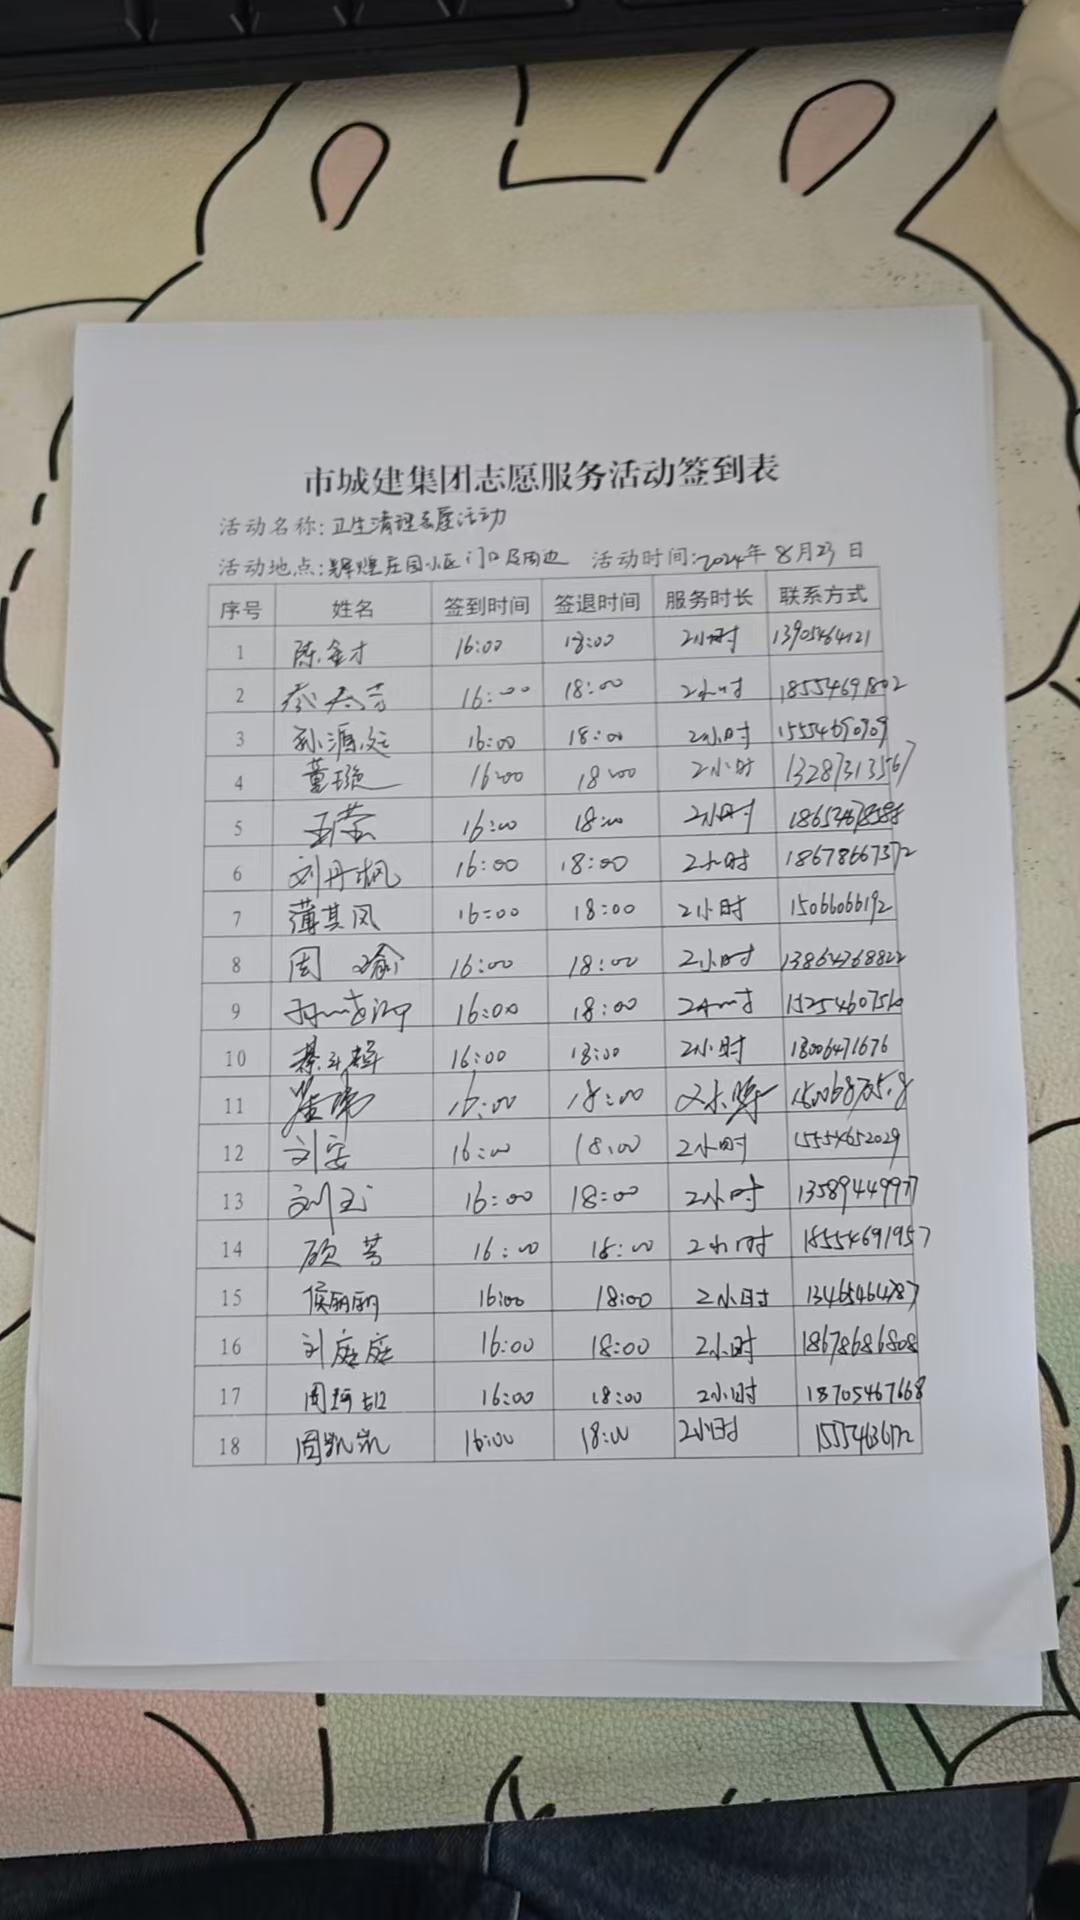 市城建集团志愿服务活动签到表
活动名称：卫生清理志愿活动
活动地点：辉煌庄园小区门口及周边 活动时间：2024年8月23日
序号 姓名 签到时间 签退时间 服务时长 联系方式
1 陈金才 16:00 18:00 2小时
2 16:00 18:00 2小时 18554691802
3 孙源廷 16:00 18:00 2小时 15554690909
4 董璇 16:00 18:00 2小时 13287313567
5 王莹 16:00 18:00 2小时
6 刘丹枫 16:00 18:00 2小时 18678667372
7 薄其凤 16:00 18:00 2小时 15066066192
8 周瑜 16:00 18:00 2小时 13864768822
9 16:00 18:00 2小时 15254607560
10 16:00 18:00 2小时 18006471676
11 16:00 18:00 2小时
12 刘安 16:00 18:00 2小时 15554652029
13 刘玉 16:00 18:00 2小时 13589449977
14 顾芳 16:00 18:00 2小时 18554691957
15 侯丽丽 16:00 18:00 2小时 13465464787
16 刘庭庭 16:00 18:00 2小时 18678686808
17 16:00 18:00 2小时 18705467668
18 周凯凯 16:00 18:00 2小时